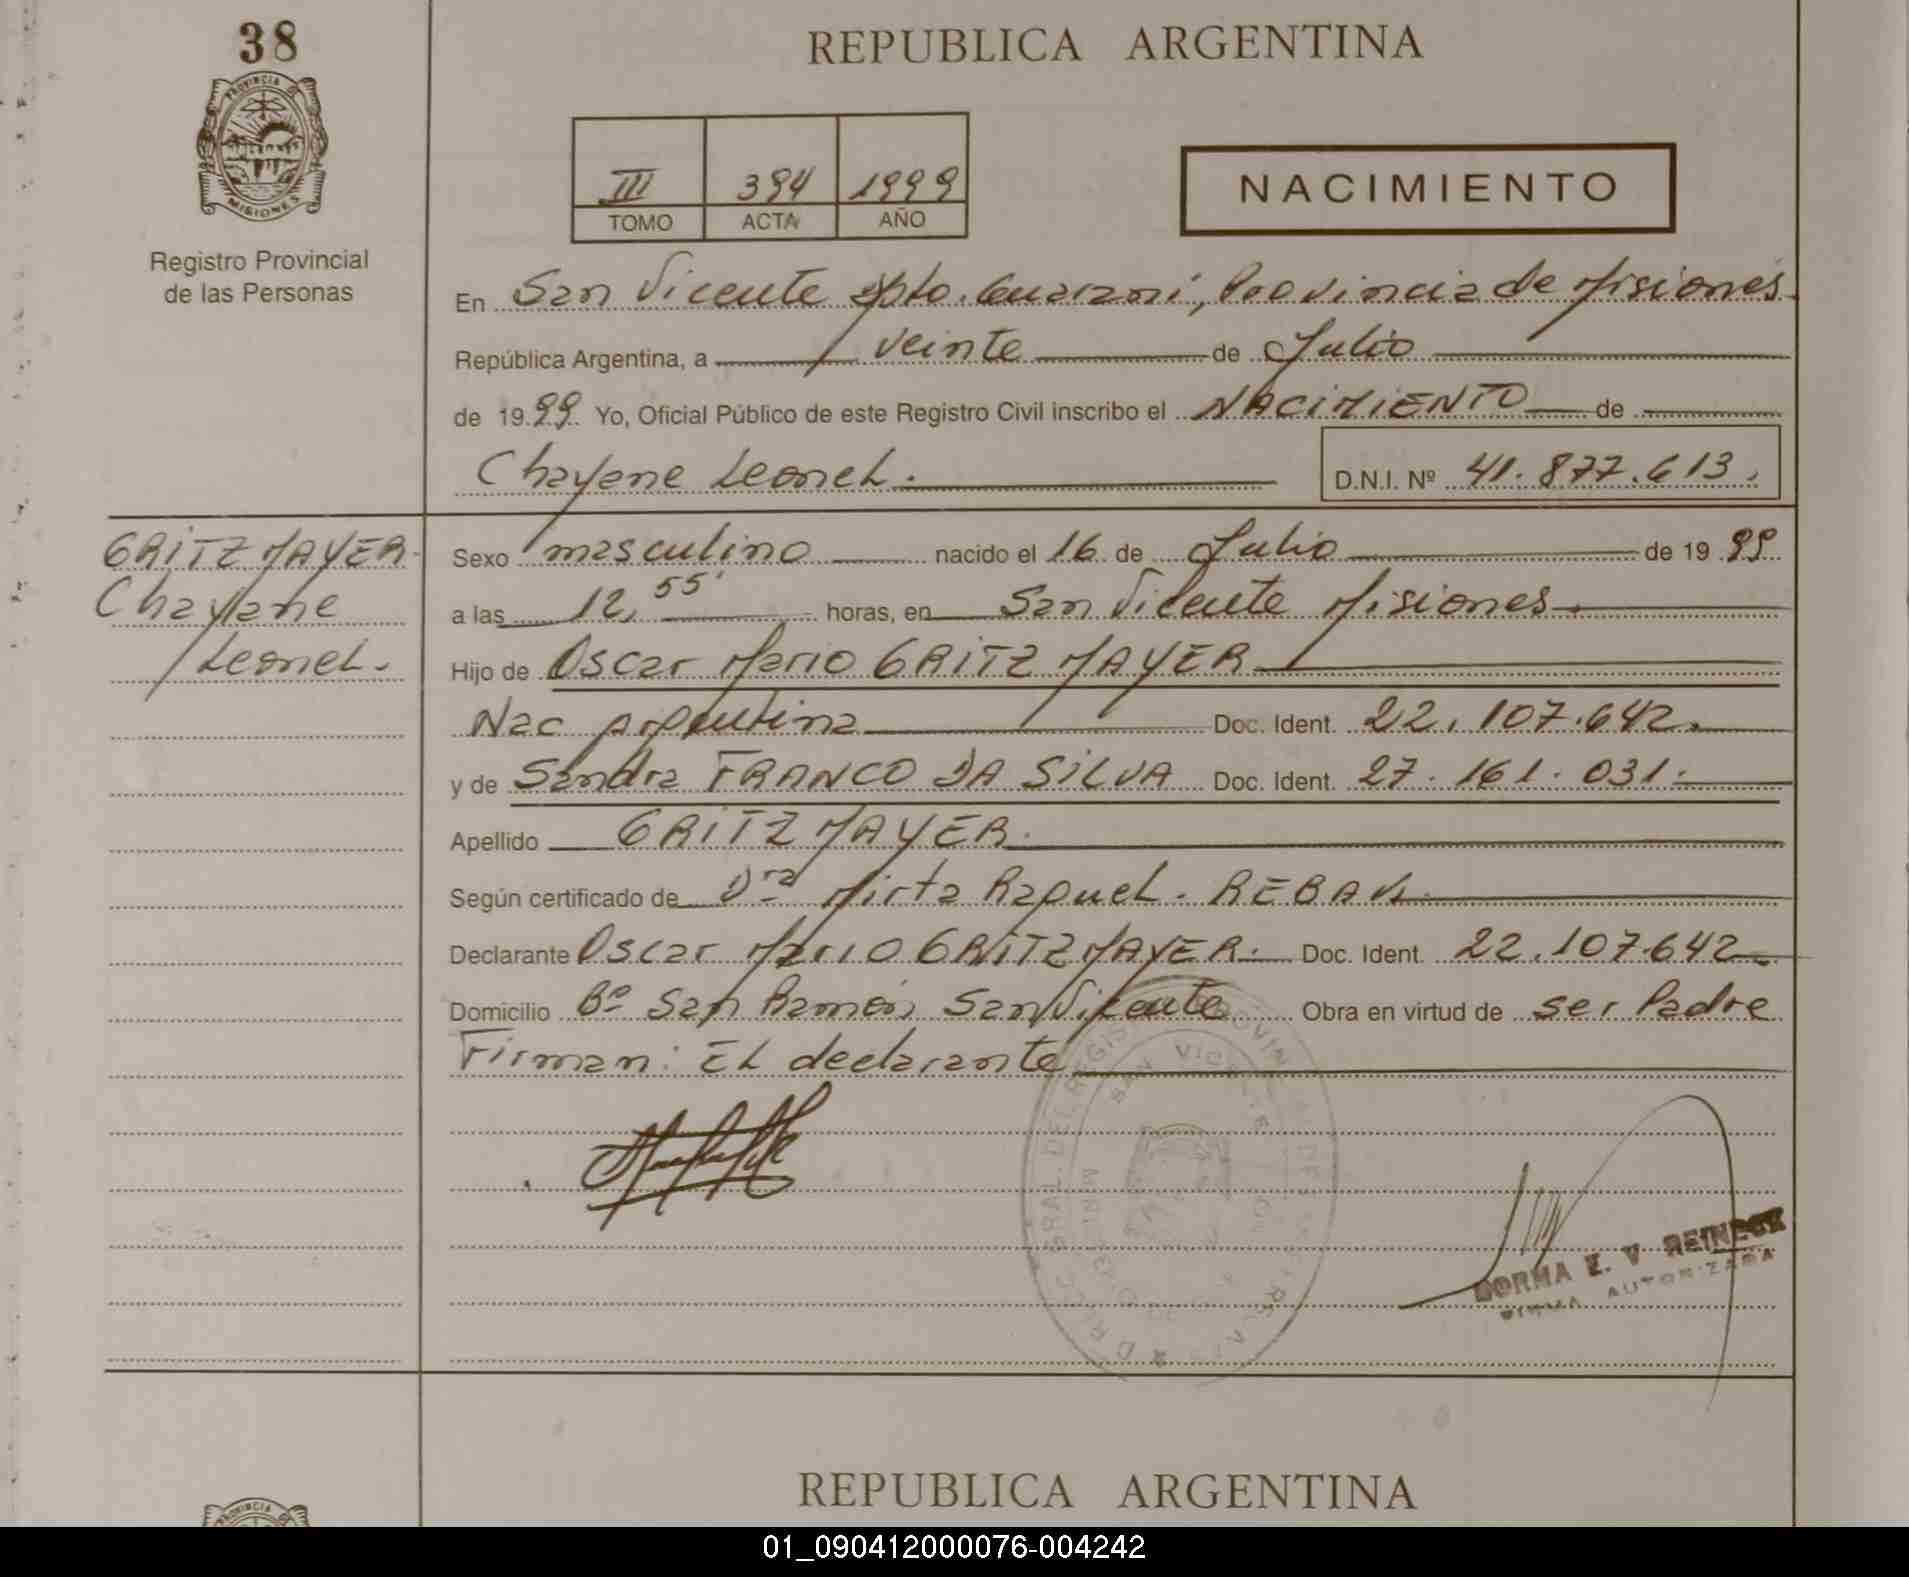 38
REPUBLICA ARGENTINA
PROVINCIA
MISIONES
Registro Provincial
de las Personas
III 394 1999
TOMO ACTA AÑO
NACIMIENTO
En San Vicente Dpto. Guarani, Provincia de Misiones
República Argentina, a veinte de Julio
de 1999 Yo, Oficial Público de este Registro Civil inscribo el NACIMIENTO de
Chayane Leonel.
D.N.I. Nº 41.877.613.
GRITZMAYER
Chayane
Leonel.
Sexo masculino nacido el 16 de Julio de 1999
a las 12,55' horas, en San Vicente Misiones
Hijo de Oscar Mario GRITZMAYER
Nac argentina Doc. Ident. 22.107.642.
y de Sandra FRANCO DA SILVA Doc. Ident. 27.161.031.
Apellido GRITZMAYER.
Según certificado de Dra Mirta Raquel.
Declarante Oscar Mario GRITZMAYER. Doc. Ident. 22.107.642
Domicilio Bº San Ramón San Vicente Obra en virtud de ser Padre
Firman: El declarante
SAN VICENTE
E. V. REINECK
FIRMA AUTORIZADA
REPUBLICA ARGENTINA
PROVINCIA
01_090412000076-004242